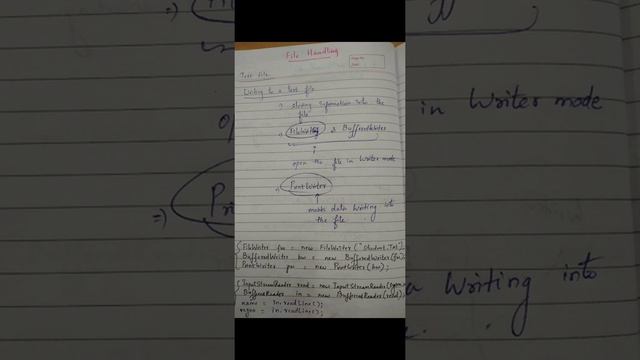 File Handling
Text file
Writing to a text file
=> storing information into the
file
=> FileWriter & BufferedWriter
open the file in Writer mode
=> PrintWriter
means data writing into
the file.
FileWriter fw = new FileWriter("Student.Txt");
BufferedWriter bw = new BufferedWriter(fw);
PrintWriter pw = new PrintWriter(bw);
InputStreamReader read = new InputStreamReader(
BufferedReader in = new BufferedReader(read);
name = in.readLine();
in.readLine();